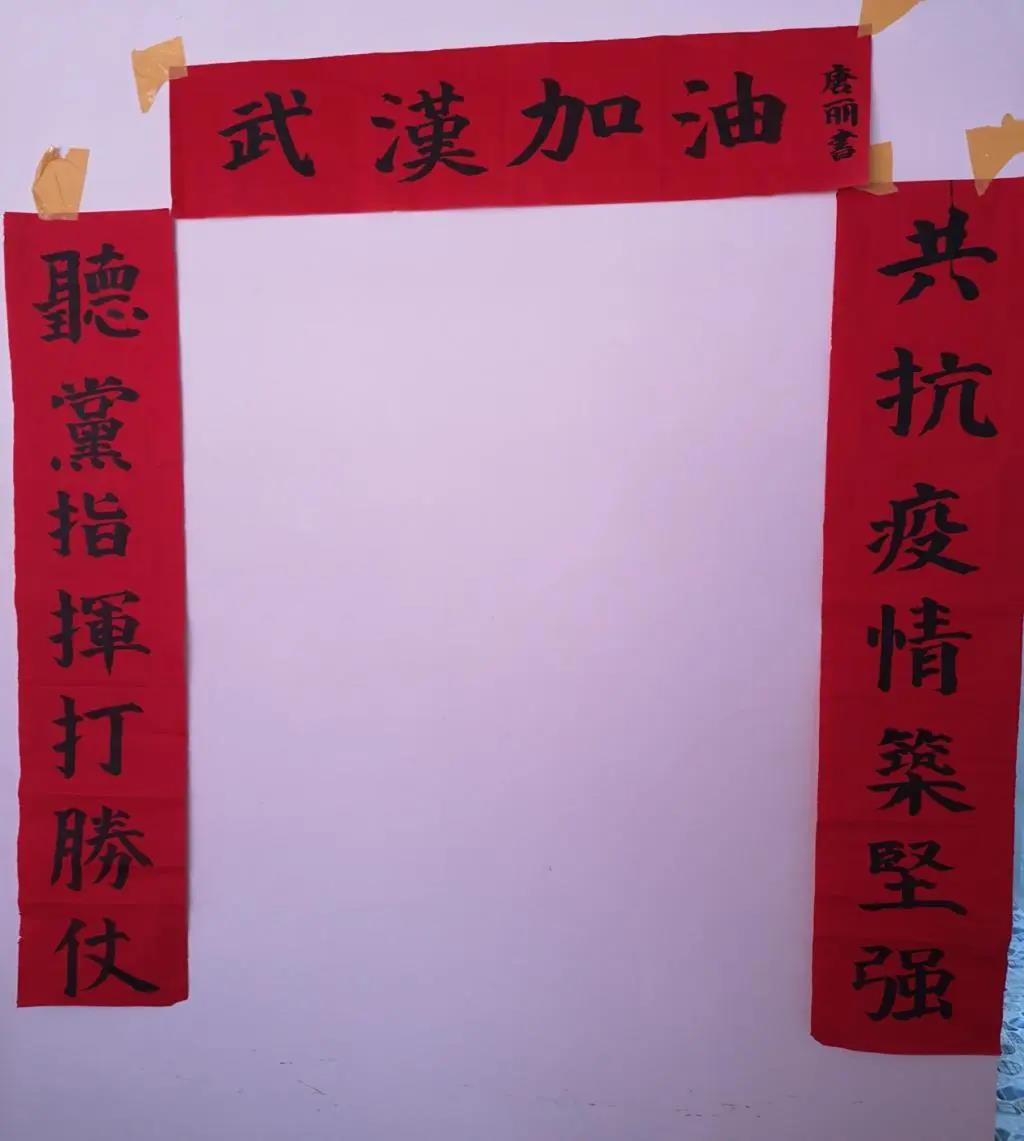 武漢加油
唐丽書
共抗疫情築堅强
聽黨指揮打勝仗